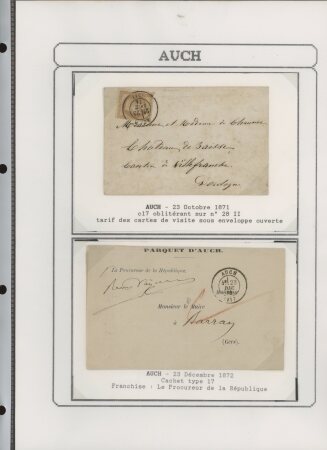 AUCH
Monsieur et Madame de
Château de
Canton de Villefranche
AUCH - 23 Octobre 1871
c17 oblitérant sur n° 28 II
tarif des cartes de visite sous enveloppe ouverte
PARQUET D'AUCH.
Le Procureur de la République,
AUCH
23
DEC
Monsieur le Maire
à Barran
(Gers)
AUCH - 23 Décembre 1872
Cachet type 17
Franchise : Le Procureur de la République